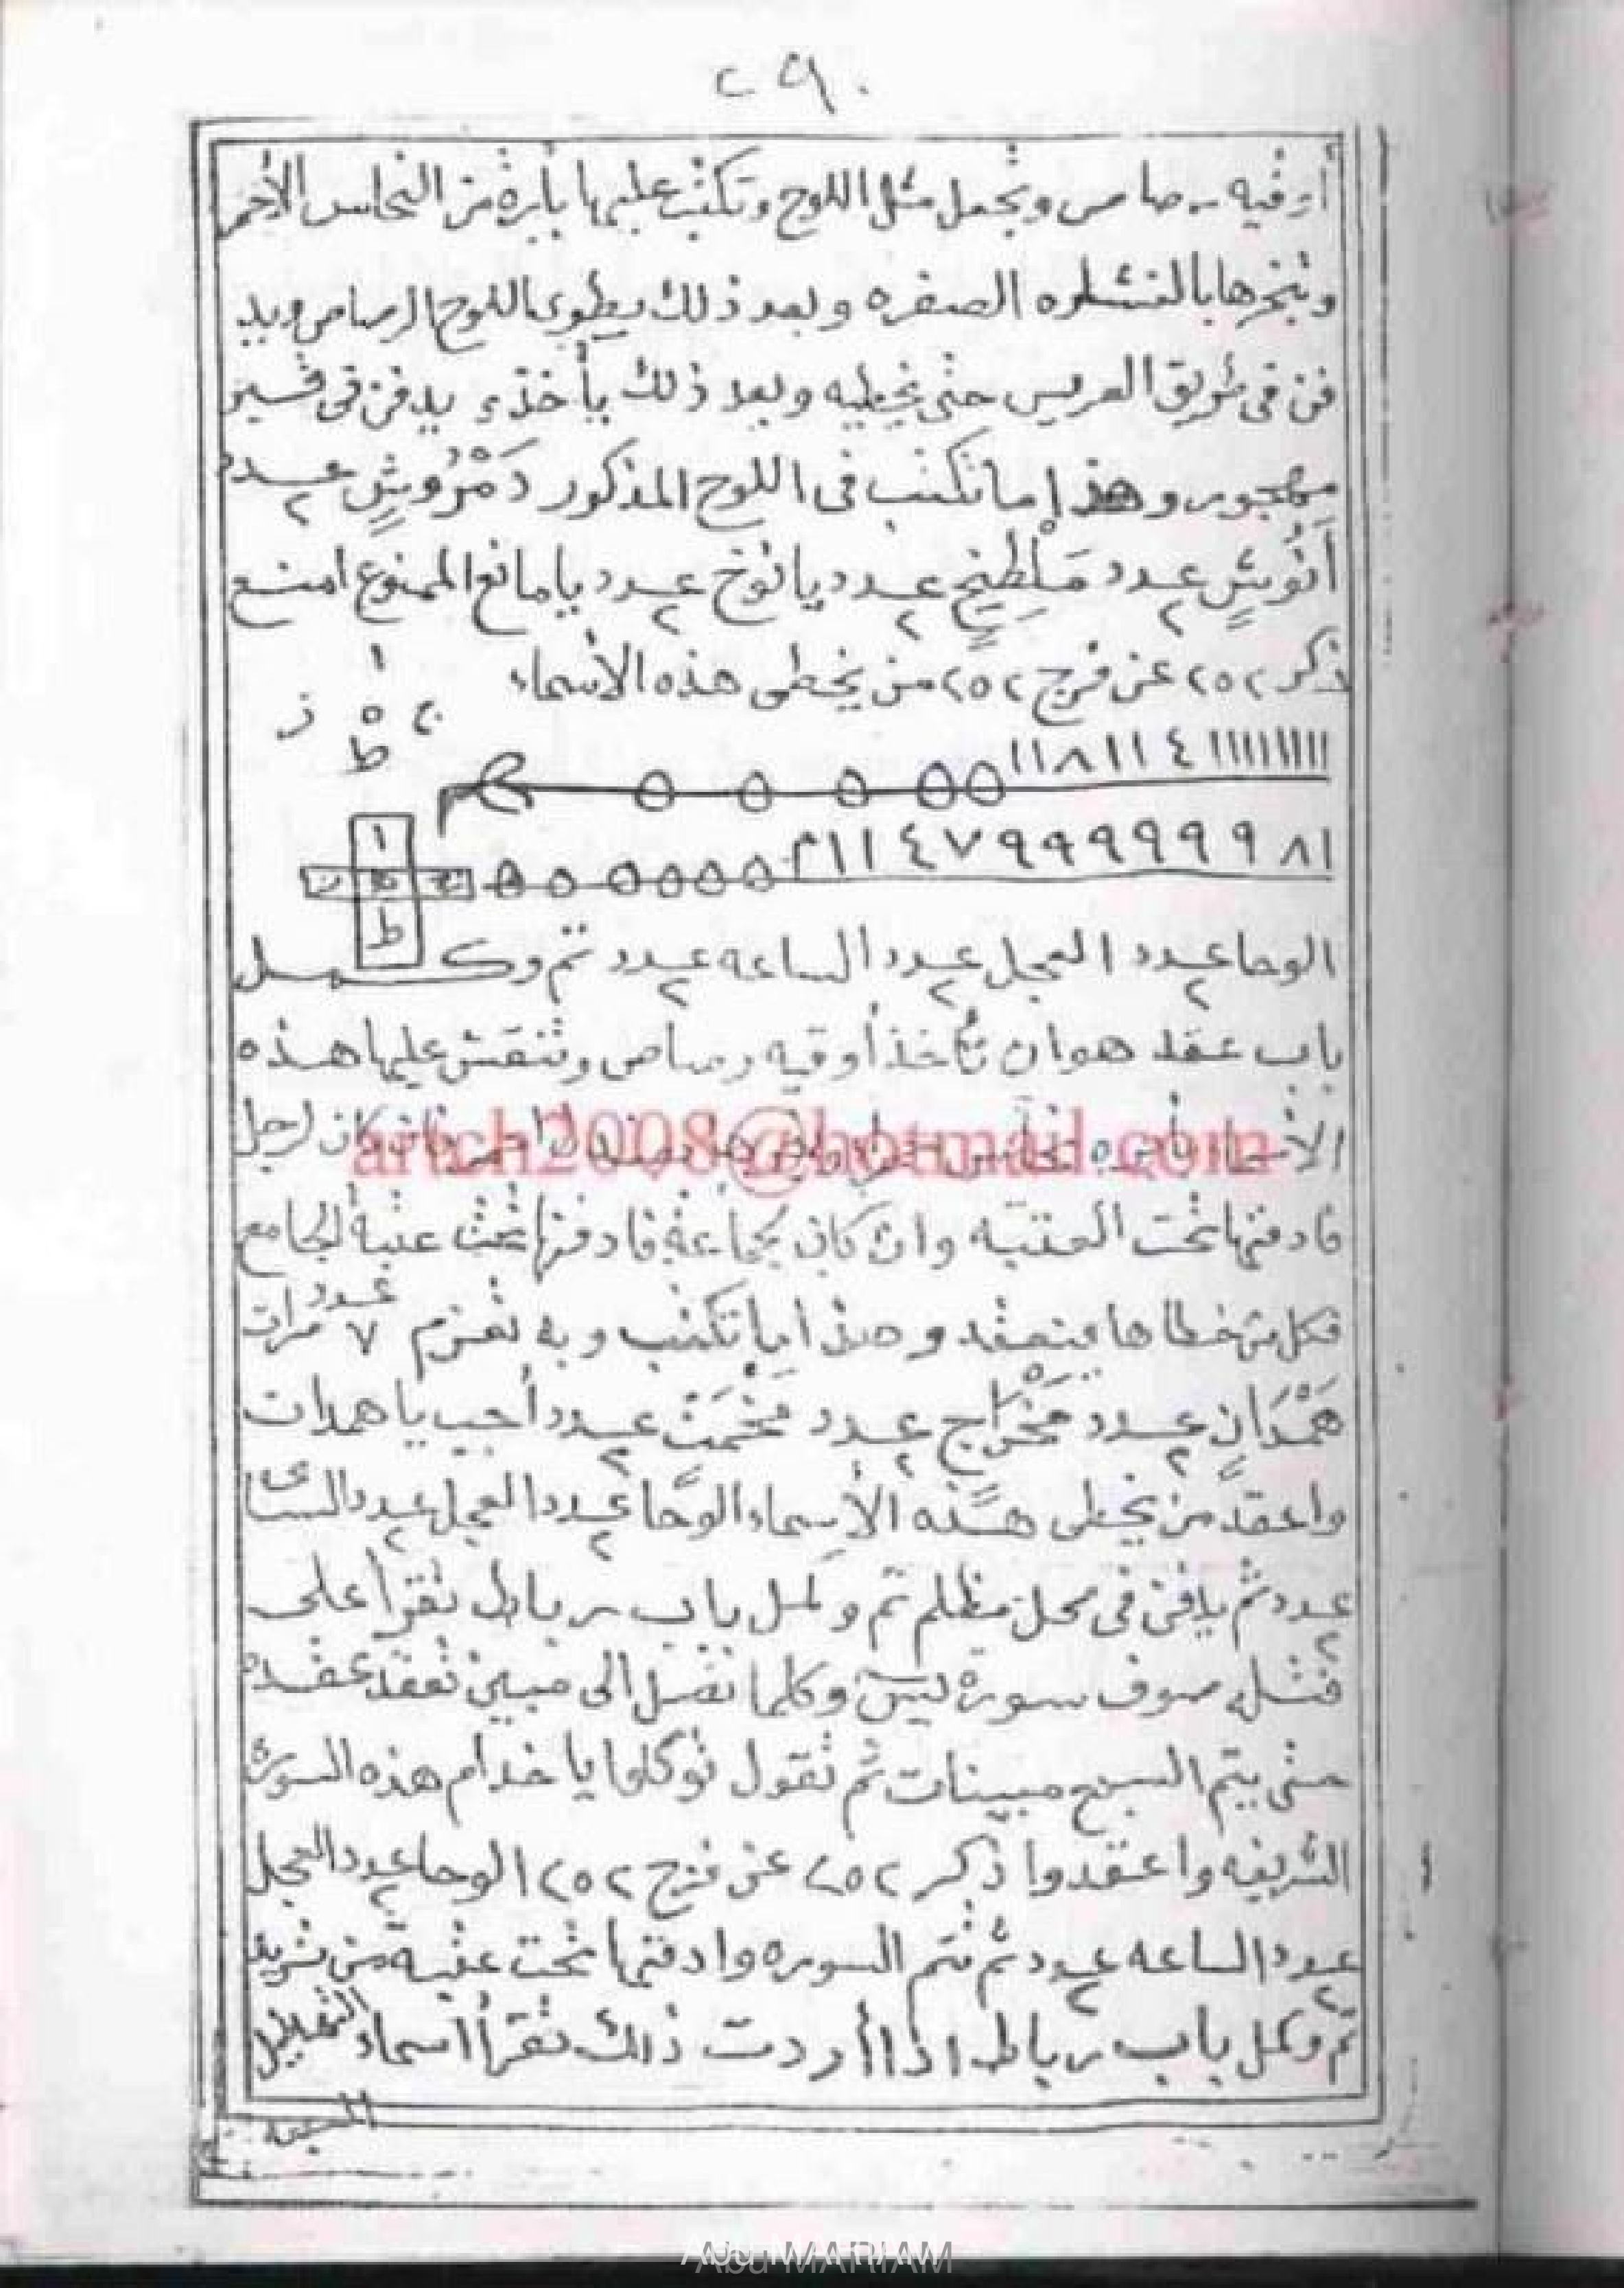 ٢٩٠
أوقيه رصاص وتجعل مثل اللوح وتكتب عليها بأبرة من النحاس الأحمر
وتبخرها بالقشطره الصفره وبعد ذلك يطوى اللوح الرصاص ويد
فن فى طريق العريس حتى يخطيه وبعد ذلك يأخذه يدفن فى قبر
مهجور وهذا ما تكتب فى اللوح المذكور دَمْرُوشٍ عدد ٢
أَنُوشٍ عدد ٢ مَلْطِيخٍ عدد ٢ يانوخ عدد ٢ يا مانع الممنوع امنع
ذكر ٢٥٢ عن فرج ٢٥٢ من يخطى هذه الأسماء
١
ه ز
ط
١١١١١١١١١ ٤ ١١٨١١
١٨ ٩ ٩ ٩ ٩ ٩ ٩ ٩ ٧ ٤ ١١
١
ط
الوحا عدد ٢ العجل عدد ٢ الساعه عدد ٢ تم وكمل
باب عقد هو ان تأخذ أوقيه رصاص وتنقش عليها هذه
الأسماء بأبره نحاس كان لرجل
فادفنها تحت العتبه وان كان لجماعة فادفنها تحت عتبة الجامع
فكل من خطاها منعقد وهذا ما تكتب وبه تعزم عدد ٧ مرات
هَمْدَانٍ عدد ٢ مَخْرَاجٍ عدد ٢ مَخْمَتٍ عدد ٢ أجب يا همدان
واعقد من يخطى هذه الأسماء الوحا عدد ٢ العجل عدد ٢ السا
عدد ٢ ثم يدفن فى محل مظلم تم وكمل باب رباط تقرأ على
فتله صوف سورة يس وكلما تصل الى مبين تعقد عقده
حتى يتم السبع مبينات ثم تقول توكلوا يا خدام هذه السورة
الشريفه واعقدوا ذكر ٢٥٢ عن فرج ٢٥٢ الوحا عدد ٢ العجل
عدد ٢ الساعه عدد ٢ ثم تتم السوره وادفنها تحت عتبة من تريد
تم وكمل باب رباط اذا أردت ذلك تقرأ أسماء
artch2008@hotmail.com
Abu MARIAM